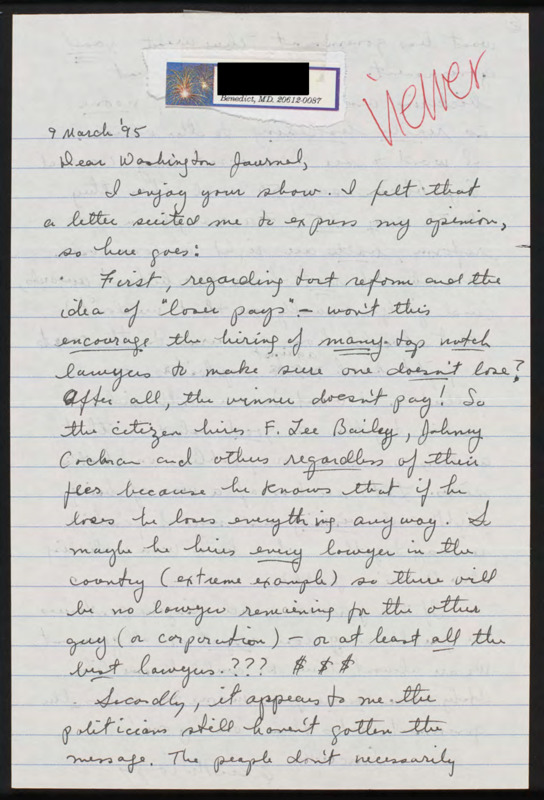 viewer
Benedict, MD. 20612-0087
9 March '95
Dear Washington Journal,
I enjoy your show. I felt that
a letter suited me to express my opinion,
so here goes:
First, regarding tort reform and the
idea of "loser pays" – won't this
encourage the hiring of many top notch
lawyers to make sure one doesn't lose?
After all, the winner doesn't pay! So
the citizen hires F. Lee Bailey, Johnny
Cochran and others regardless of their
fees because he knows that if he
loses he loses everything anyway. So
maybe he hires every lawyer in the
country (extreme example) so there will
be no lawyer remaining for the other
guy (or corporation) – or at least all the
best lawyers. ??? $ $ $
Secondly, it appears to me the
politicians still haven't gotten the
message. The people don't necessarily